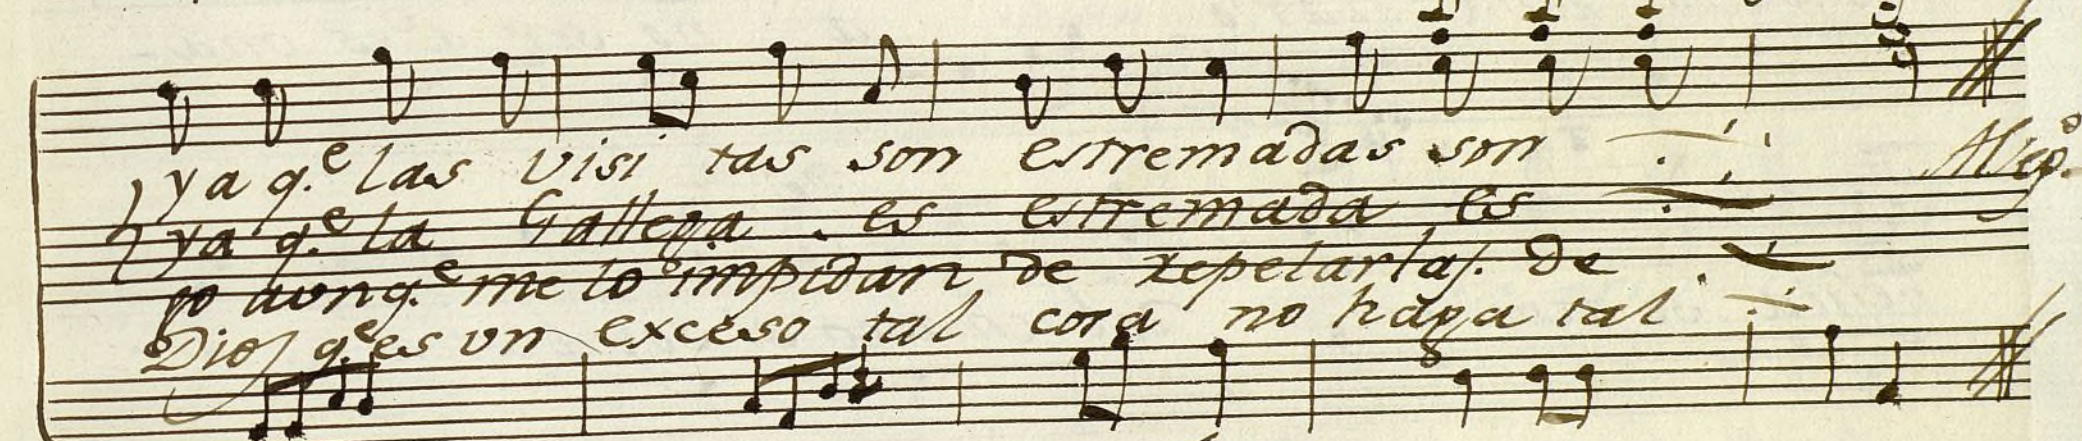 ya q.e las visi tas son estremadas son
Alleg.o
ya q.e la Gallega es estremada es
yo aunq.e me lo impidan de repelarlas. de
Dios q.e es un exceso tal cosa no haga tal